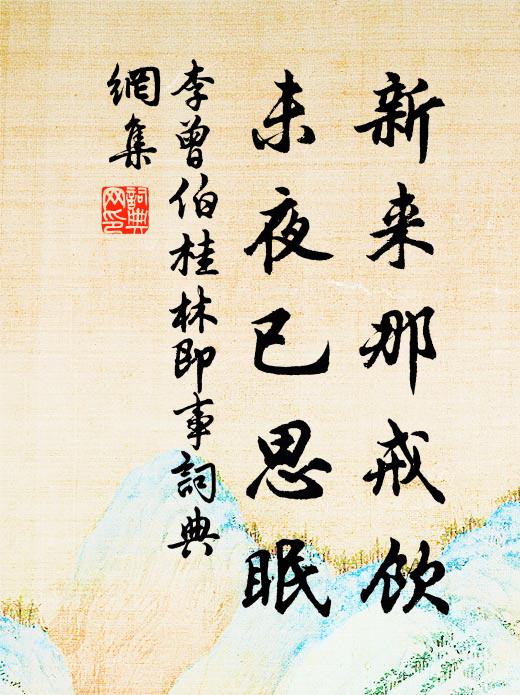 新来那戒饮
未夜已思眠
李曾伯桂林即事詞典
網集
詞典
网印